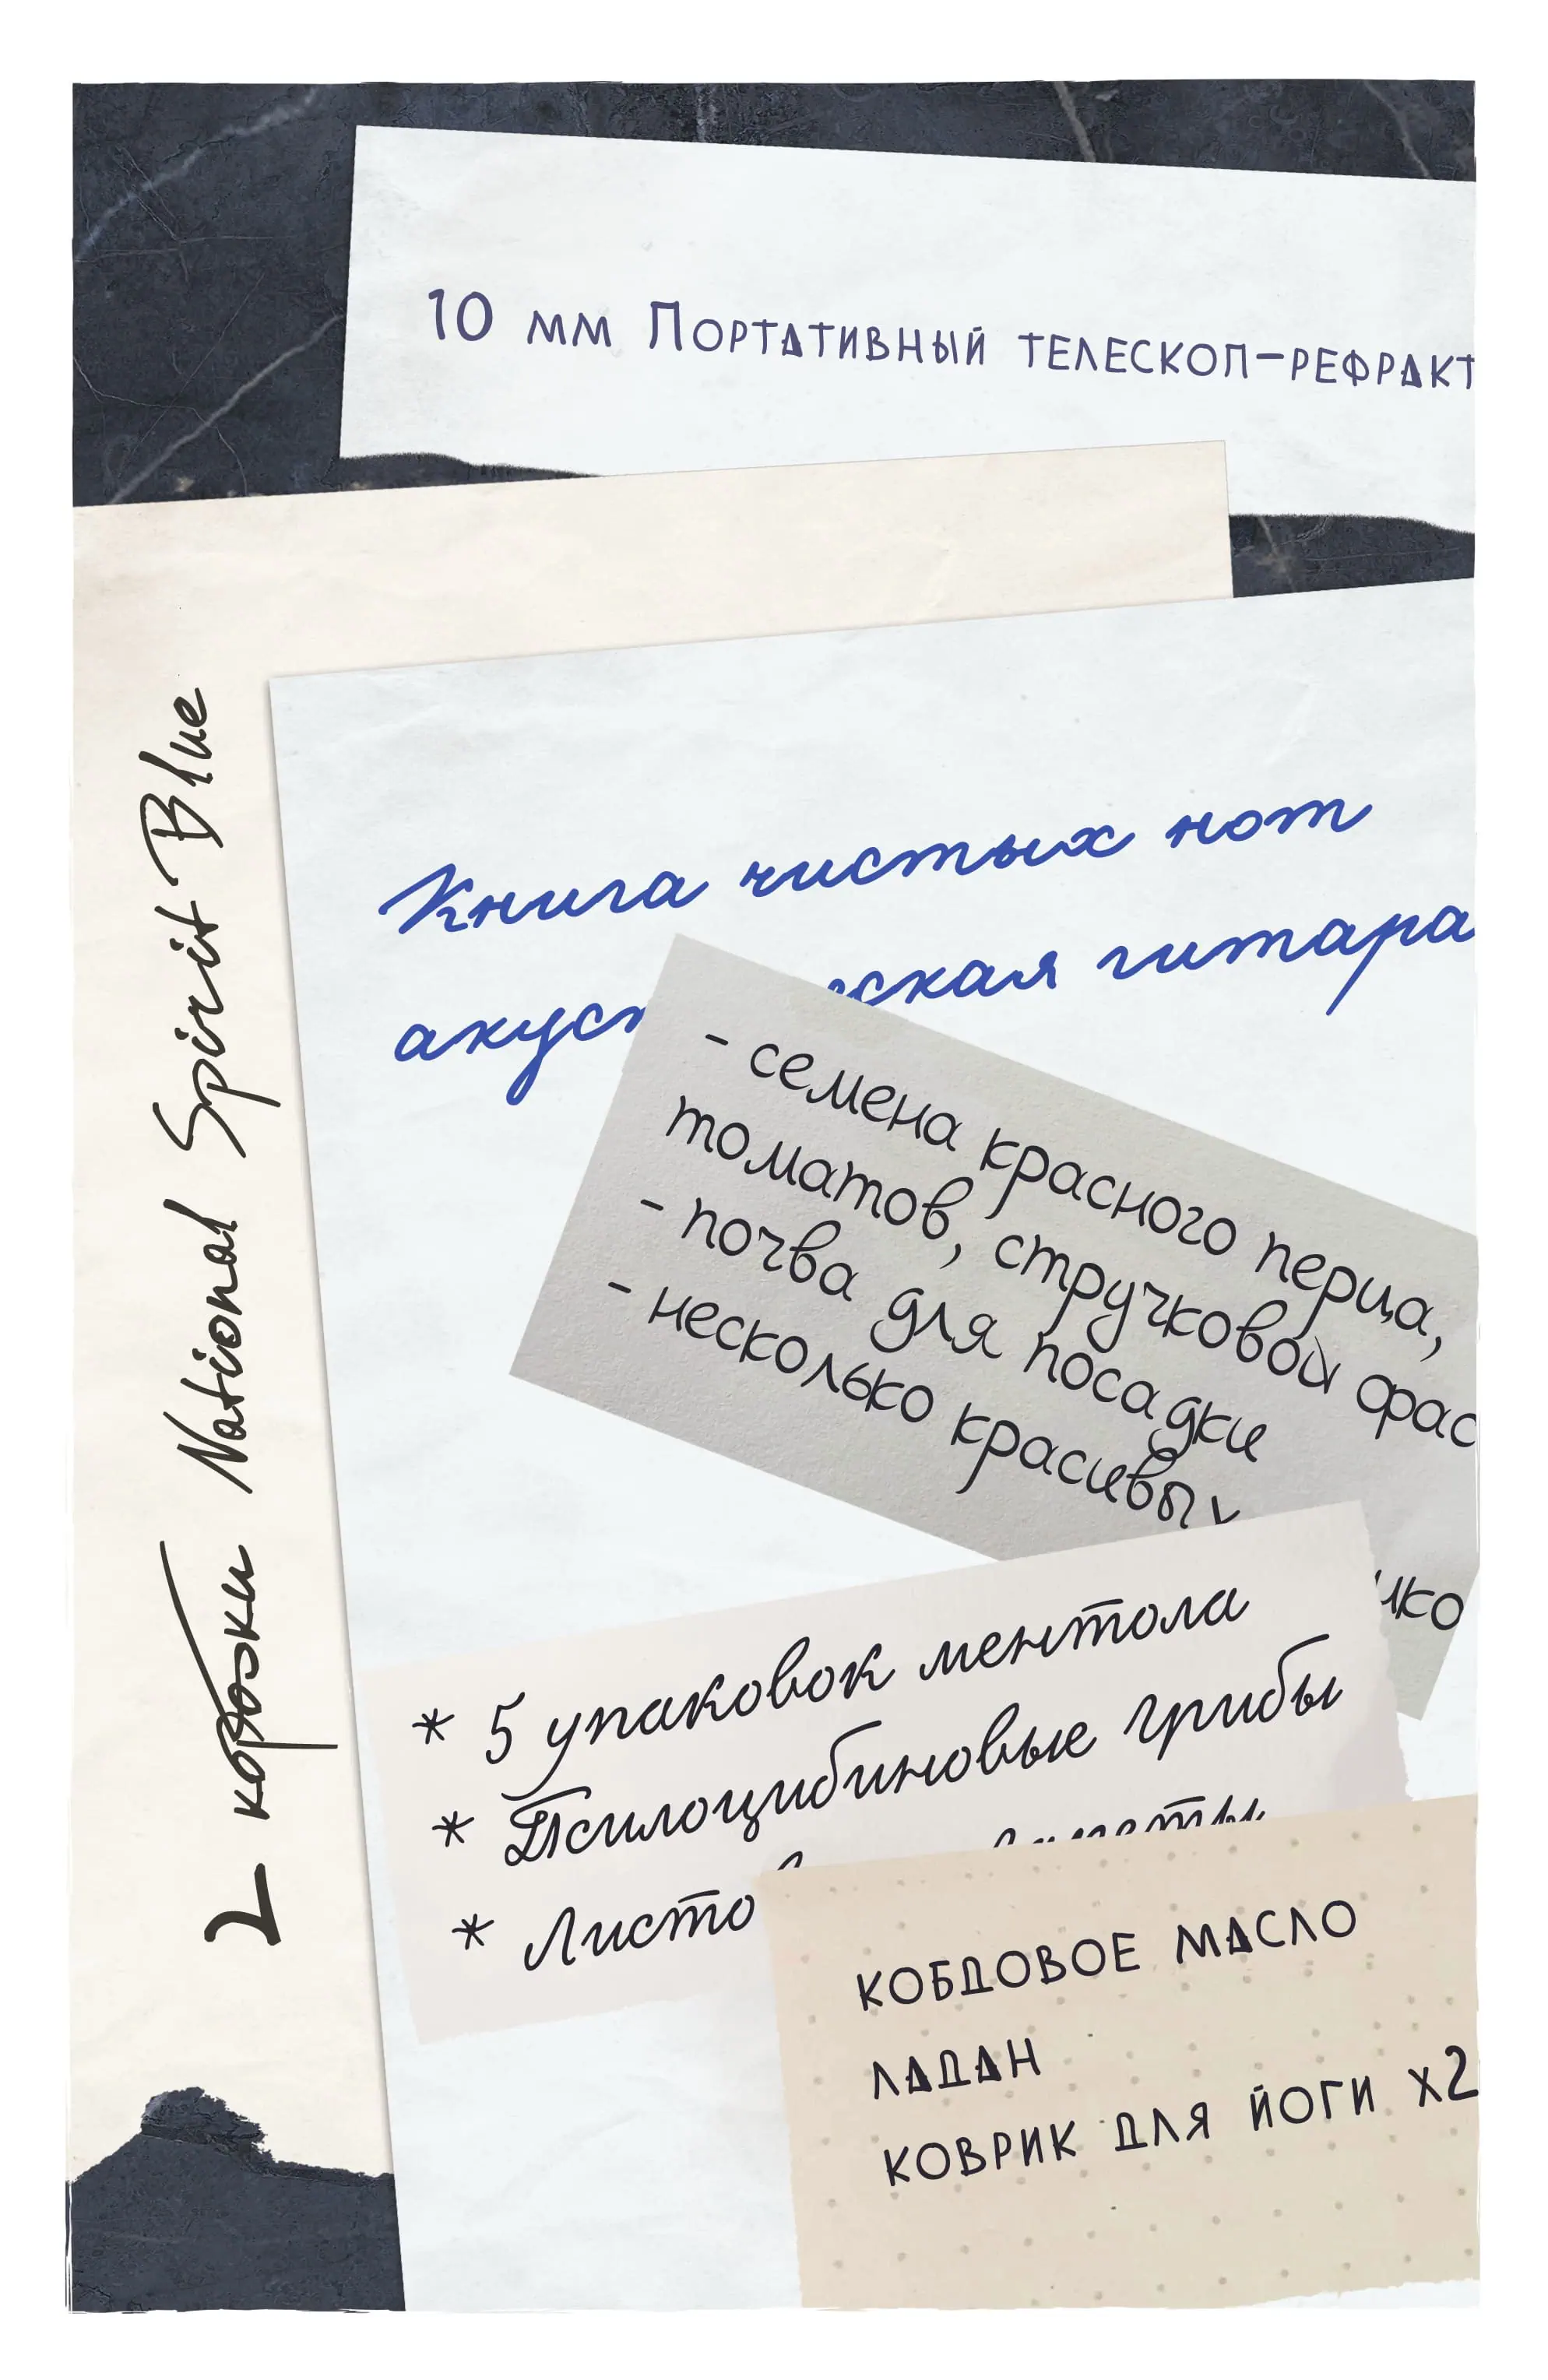 10 мм Портативный телескоп-рефракт
2 коробки National Spirit Blue
Книга чистых нот
гитара
- семена красного перца,
томатов, стручковой фас
- почва для посадки
- несколько красивых
* 5 упаковок ментола
* Псилоцибиновые грибы
* Листо
КОБДОВОЕ МАСЛО
ЛАДАН
КОВРИК ДЛЯ ЙОГИ x2